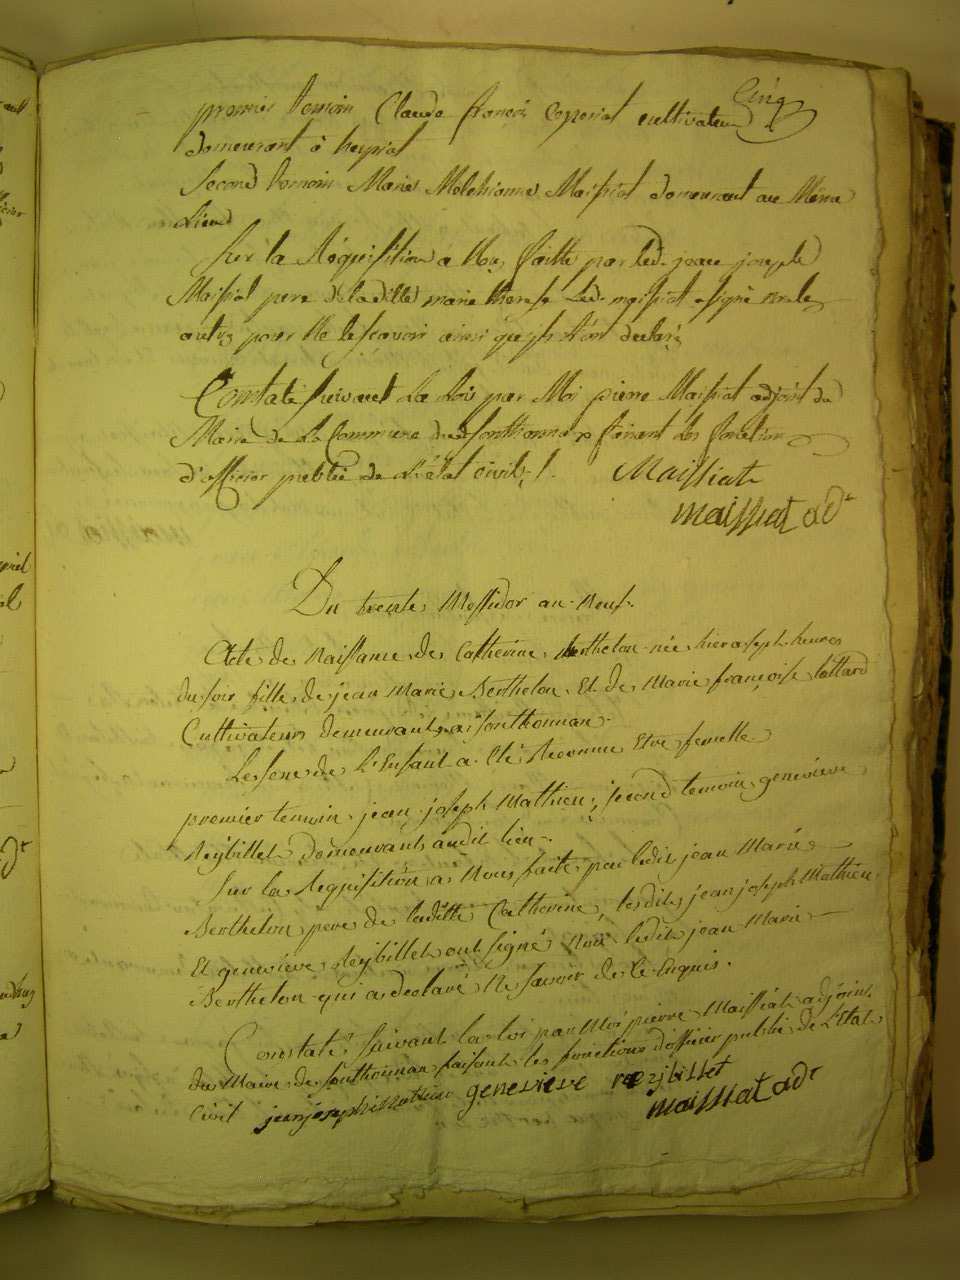 Cinq
premier temoin Claude françois Coperiat cultivateur
demeurant à heyriat
Second temoin Marie Melchionne Maissiat demeurant au Même
Lieu
Sur la Réquisition a Nous faitte par led. jean joseph
Maissiat pere de laditte marie therese Led. maissiat a signé non les
autres pour ne le sçavoir ainsi qu'ils l'ont declaré
Constaté suivant La Loi par Moi pierre Maissiat adjoint du
Maire de La Commune de Sonthonnax faisant les fonctions
d'officier public de L'état civil ./. Maissiat
maissiat adt
Du trente Messidor an Neuf.
Acte de Naissance de Catherine Berthelon née hier a sept heures
du soir fille de jean Marie Berthelon Et de Marie françoise tattard
Cultivateurs demeurants a sonthonnax.
Le sexe de L'Enfant a Eté Reconnu Etre femelle
premier temoin, jean joseph Mathieu, second temoin genevieve
Reybillet demeurants audit lieu.
Sur la Requisition a Nous faite par ledit jean Marie
Berthelon pere de laditte Catherine, lesdits jean joseph Mathieu
Et genevieve Reybillet ont signé Non ledit jean Marie
Berthelon qui a declaré Ne savoir de ce Enquis.
Constaté Suivant la loi par Moi pierre Maissiat adjoint
du Maire de sonthonnax faisant les fonctions d'officier public de L'Etat
Civil jean joseph Mathieu genevieve reijbillet
maissiat adt